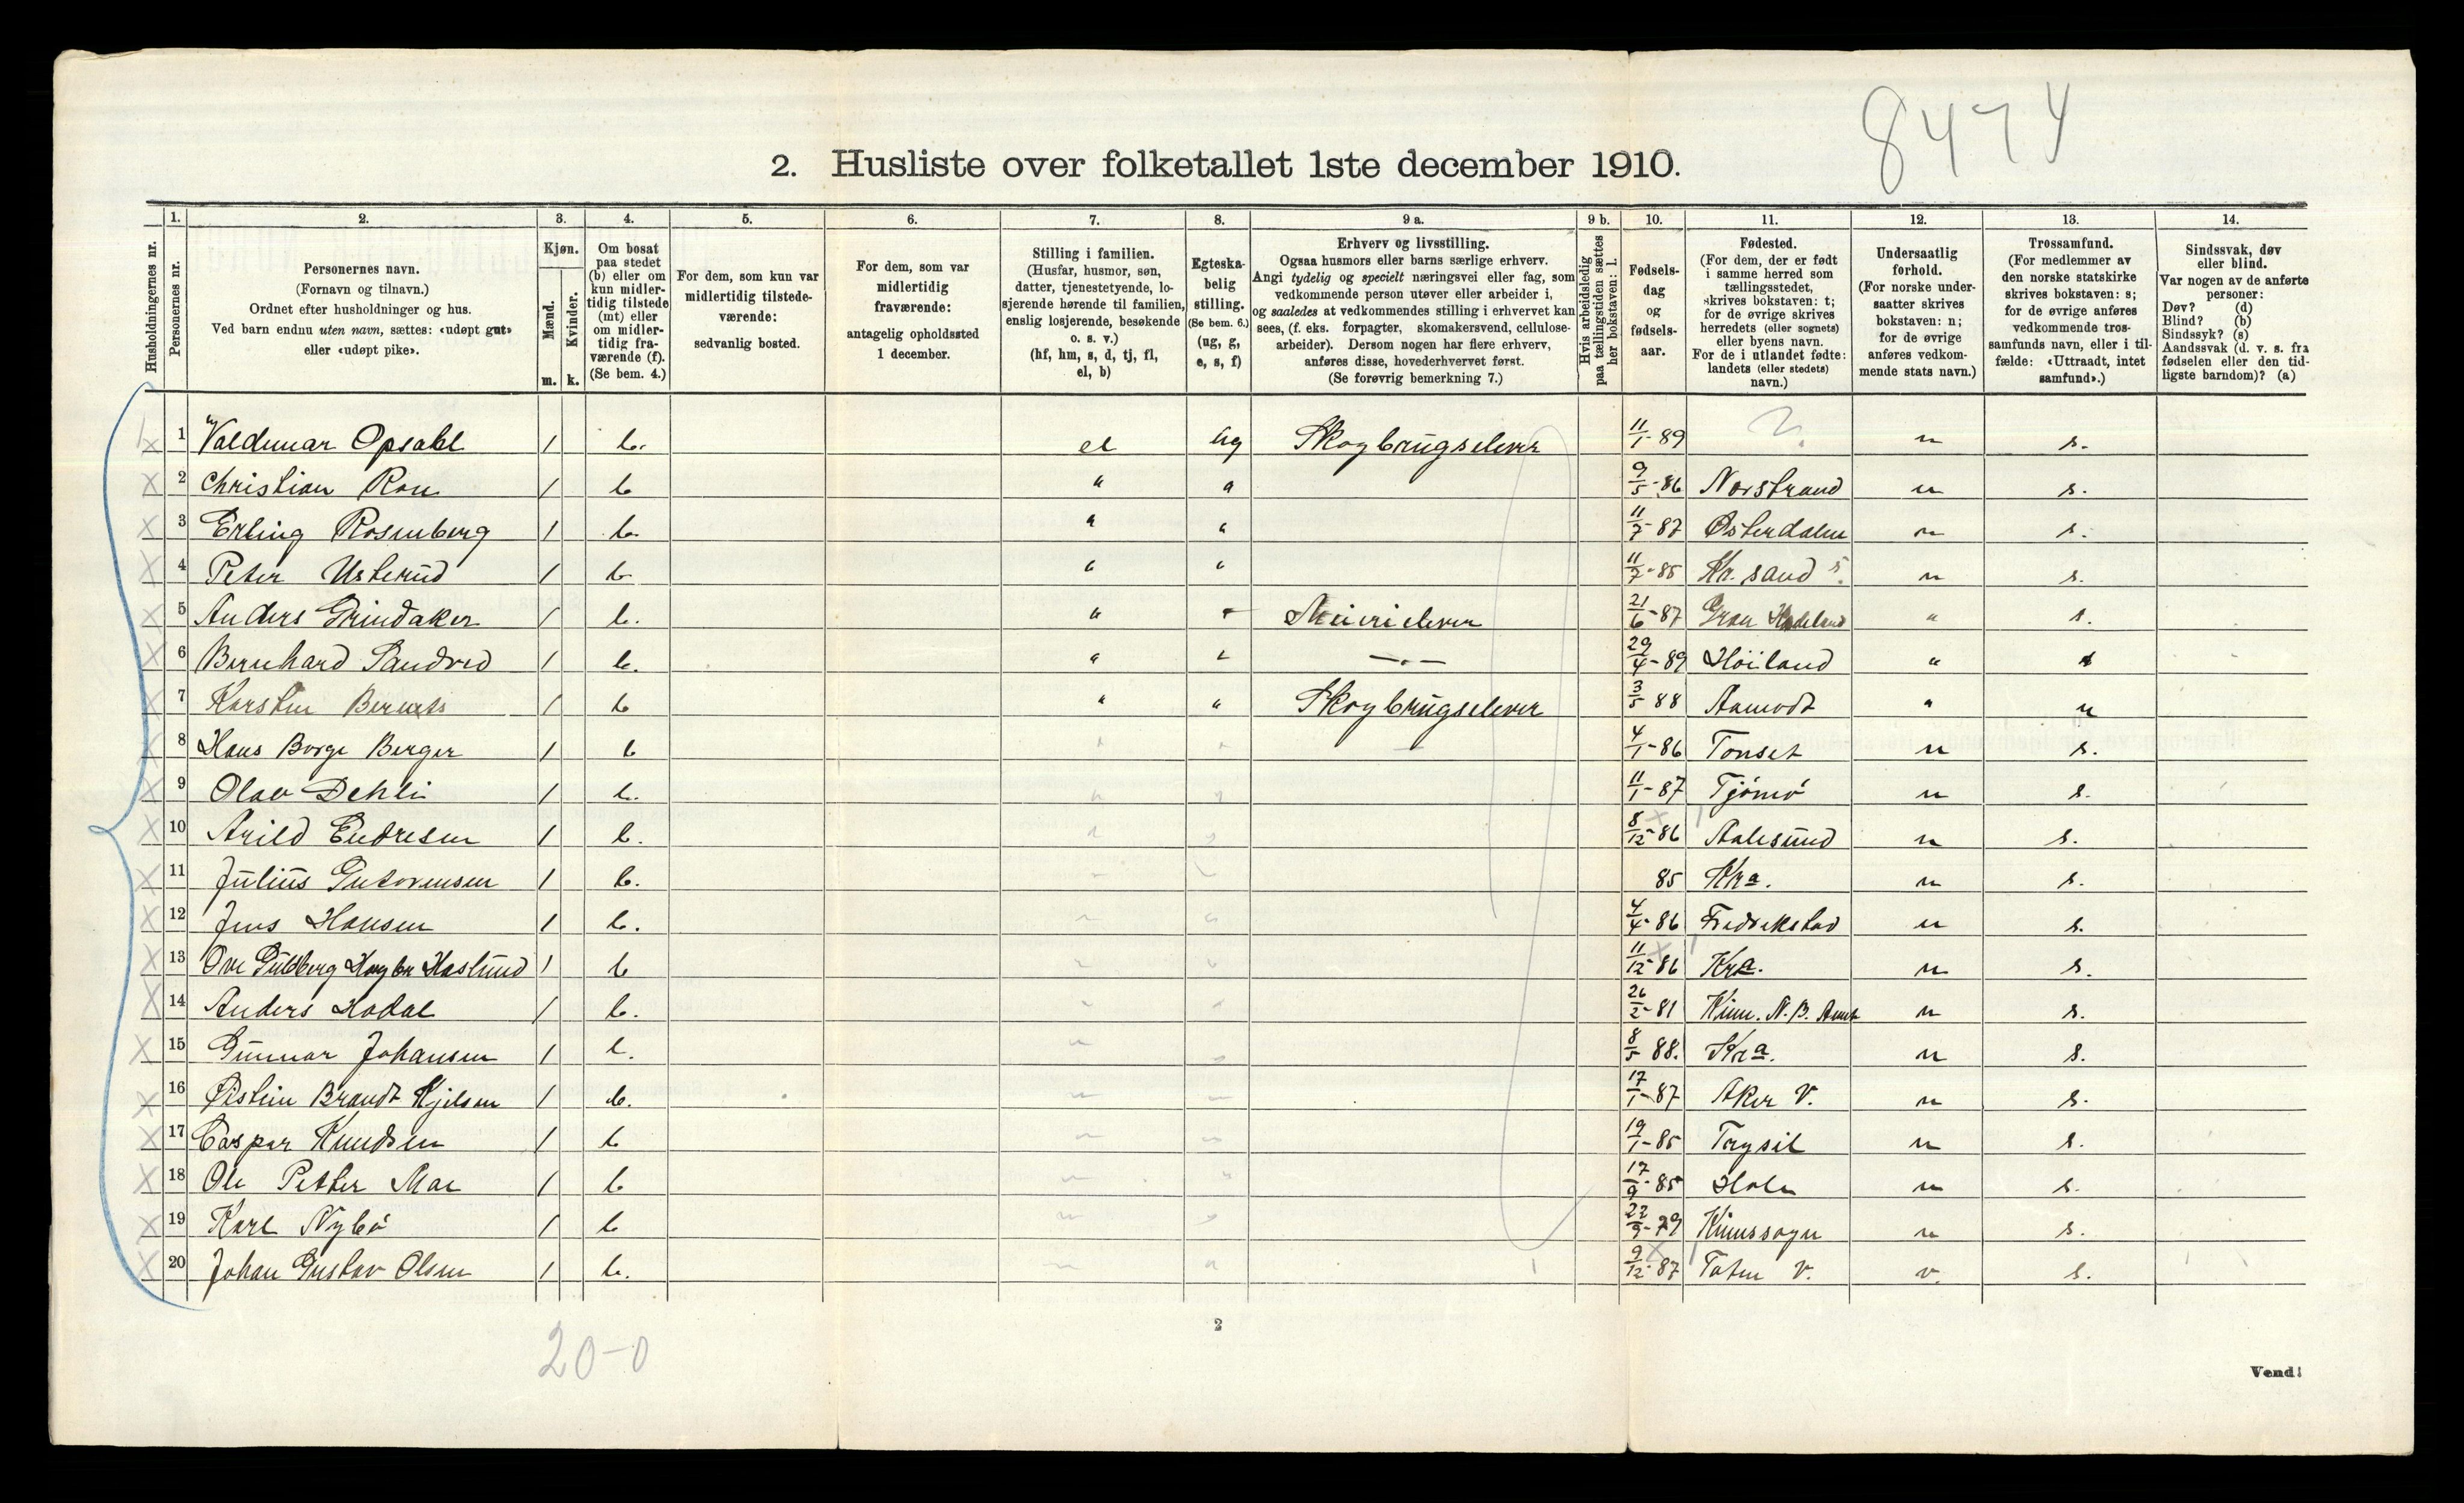 8474
2. Husliste over folketallet 1ste december 1910.
Husholdningernes nr.
1. Personernes nr.
2. Personernes navn.
(Fornavn og tilnavn.)
Ordnet efter husholdninger og hus.
Ved barn endnu uten navn, sættes: «udøpt gut»
eller «udøpt pike».
3. Kjøn.
Mænd. m.
Kvinder. k.
4. Om bosat
paa stedet
(b) eller om
kun midler-
tidig tilstede
(mt) eller
om midler-
tidig fra-
værende (f).
(Se bem. 4.)
5. For dem, som kun var
midlertidig tilstede-
værende:
sedvanlig bosted.
6. For dem, som var
midlertidig
fraværende:
antagelig opholdssted
1 december.
7. Stilling i familien.
(Husfar, husmor, søn,
datter, tjenestetyende, lo-
sjerende hørende til familien,
enslig losjerende, besøkende
o. s. v.)
(hf, hm, s, d, tj, fl,
el, b)
8. Egteska-
belig
stilling.
(Se bem. 6.)
(ug, g,
e, s, f)
9 a. Erhverv og livsstilling.
Ogsaa husmors eller barns særlige erhverv.
Angi tydelig og specielt næringsvei eller fag, som
vedkommende person utøver eller arbeider i,
og saaledes at vedkommendes stilling i erhvervet kan
sees, (f. eks. forpagter, skomakersvend, cellulose-
arbeider). Dersom nogen har flere erhverv,
anføres disse, hovederhvervet først.
(Se forøvrig bemerkning 7.)
9 b. Hvis arbeidsledig
paa tællingstiden sættes
her bokstaven: l.
10. Fødsels-
dag
og
fødsels-
aar.
11. Fødested.
(For dem, der er født
i samme herred som
tællingsstedet,
skrives bokstaven: t;
for de øvrige skrives
herredets (eller sognets)
eller byens navn.
For de i utlandet fødte:
landets (eller stedets)
navn.)
12. Undersaatlig
forhold.
(For norske under-
saatter skrives
bokstaven: n;
for de øvrige
anføres vedkom-
mende stats navn.)
13. Trossamfund.
(For medlemmer av
den norske statskirke
skrives bokstaven: s;
for de øvrige anføres
vedkommende tros-
samfunds navn, eller i til-
fælde: «Uttraadt, intet
samfund».)
14. Sindssvak, døv
eller blind.
Var nogen av de anførte
personer:
Døv? (d)
Blind? (b)
Sindssyk? (s)
Aandssvak (d. v. s. fra
fødselen eller den tid-
ligste barndom)? (a)
1 Valdemar Opsahl 1 b. el ug Skogbrugselever 11/1-89 ? n s.
2 Christian Ron 1 b " " 9/5-86 Norstrand n s.
3 Erling Rosenberg 1 b. " " 11/7-87 Østerdalen n s.
4 Peter Usterud 1 b " " 11/7-85 Kr. sand S. n s.
5 Anders Grindaker 1 b. " " Meierielever 21/6-87 Gran Hadeland " s.
6 Bernhard Sandved 1 b. " " —"— 29/4-89 Höiland " s
7 Karsten 1 b " " Skogbrugselever 3/5 88 Aamodt " n
8 Hans Borge Berger 1 b 4/1-86 Tonset n s.
9 Olav Dehli 1 b. 11/1-87 Tjømö n s.
10 Arild Endresen 1 b. 8/12-86 Aalesund n s.
11 Julius Gutormsen 1 b. 85 Kra. n s.
12 Jens Hansen 1 b. 4/4-86 Fredrikstad n s.
13 Ove Guldberg Høgh Haslund 1 b 11/12-86 Kra. n s.
14 Anders Hodal 1 b. 26/2-81 Kinn. N. B. Amt n s.
15 Gunnar Johansen 1 b. 8/5 88. Kra. n s.
16 Øistein Brandt Kjelsen 1 b. 17/1-87 Aker V. n s.
17 Caspar Knudsen 1 b 19/1-85 Trysil n s.
18 Ole Petter Moe 1 b 17/9-85 Hole n s.
19 Karl Nybö 1 b 22/9-79 Kinnssogn n s.
20 Johan Gustav Olsen 1 b. 9/12-87 Toten V. n. s.
20-0
2
Vend!